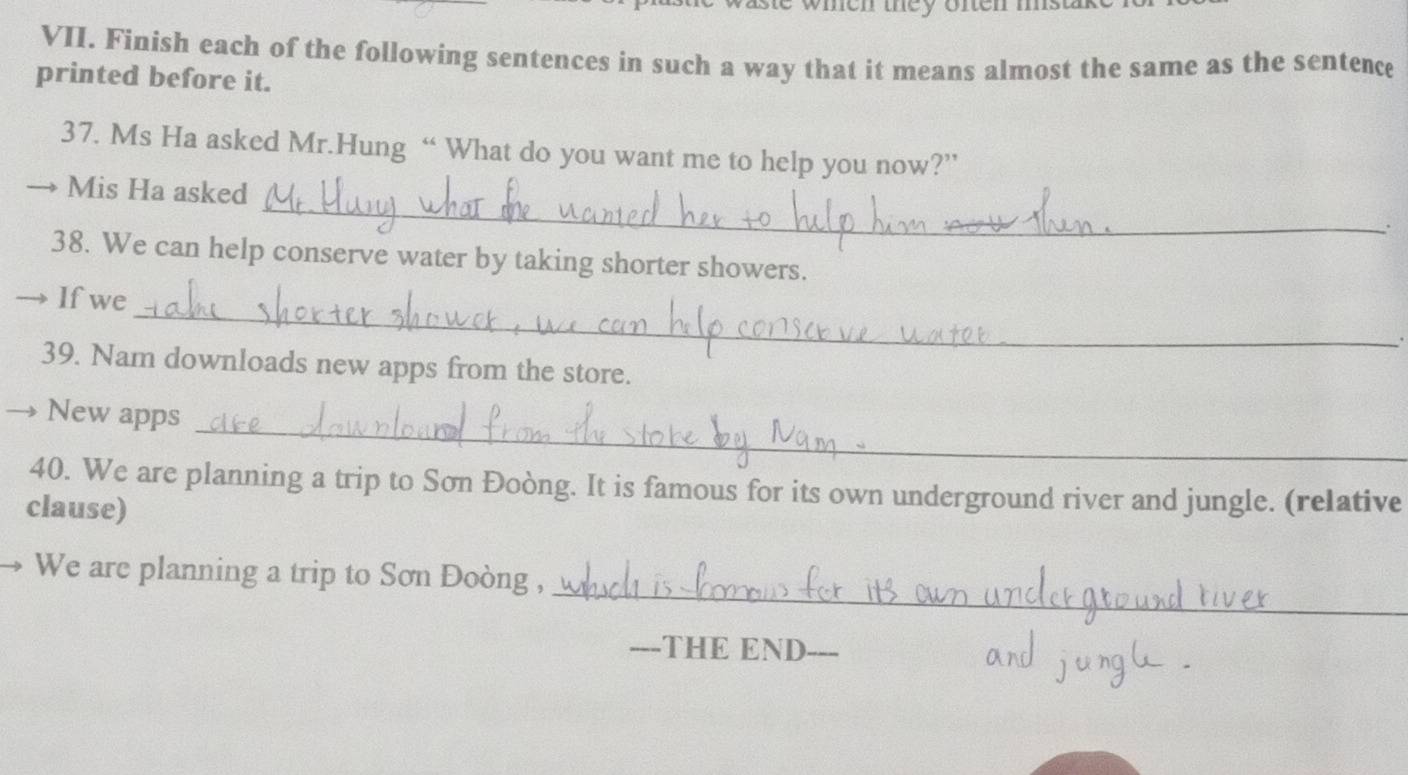 of plastic waste which they often mistake for food.
VII. Finish each of the following sentences in such a way that it means almost the same as the sentence
printed before it.
37. Ms Ha asked Mr.Hung “ What do you want me to help you now?”
→ Mis Ha asked Mr. Hung what he wanted her to help him now then.
38. We can help conserve water by taking shorter showers.
→ If we take shorter shower, we can help conserve water.
39. Nam downloads new apps from the store.
→ New apps are download from the store by Nam.
40. We are planning a trip to Sơn Đoòng. It is famous for its own underground river and jungle. (relative
clause)
→ We are planning a trip to Sơn Đoòng , which is famous for its own underground river
and jungle.
---THE END---